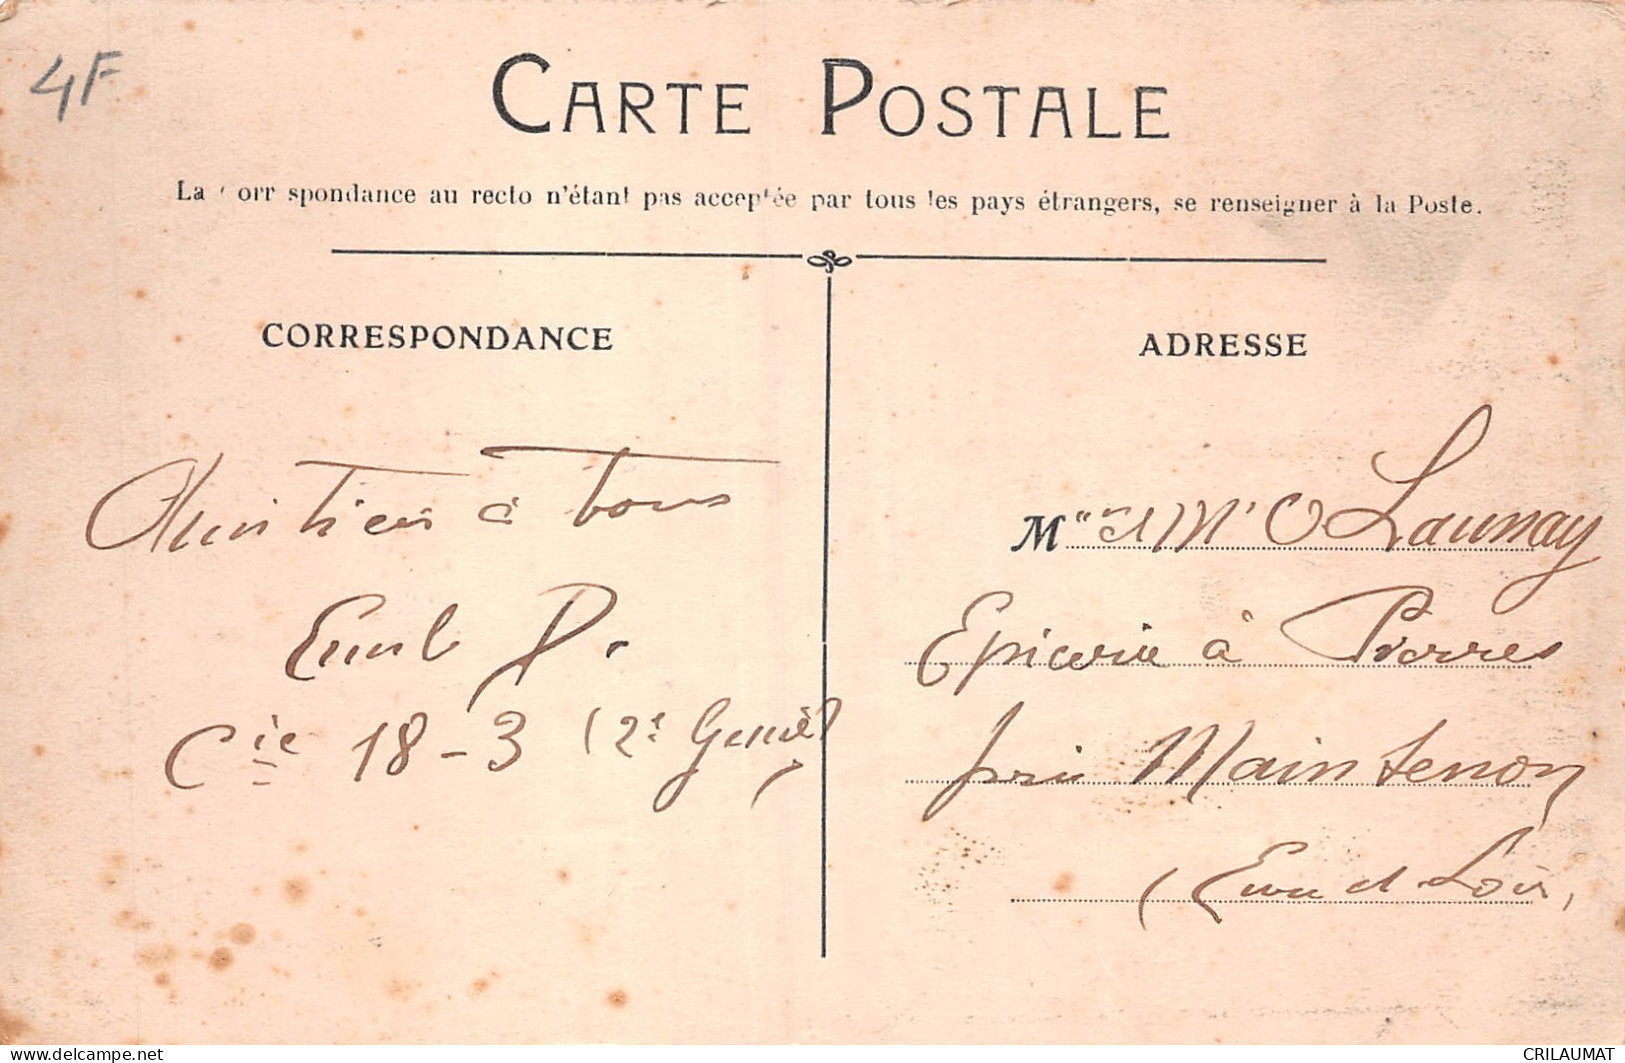 4F
CARTE POSTALE
La Correspondance au recto n'étant pas acceptée par tous les pays étrangers, se renseigner à la Poste.
CORRESPONDANCE
ADRESSE
à tous
Emile D.
Cie 18-3 (2e Génie)
Mme et Mr O Launay
Epicerie à Pierres
près Maintenon
(Eure et Loir)
delcampe.net
CRILAUMAT